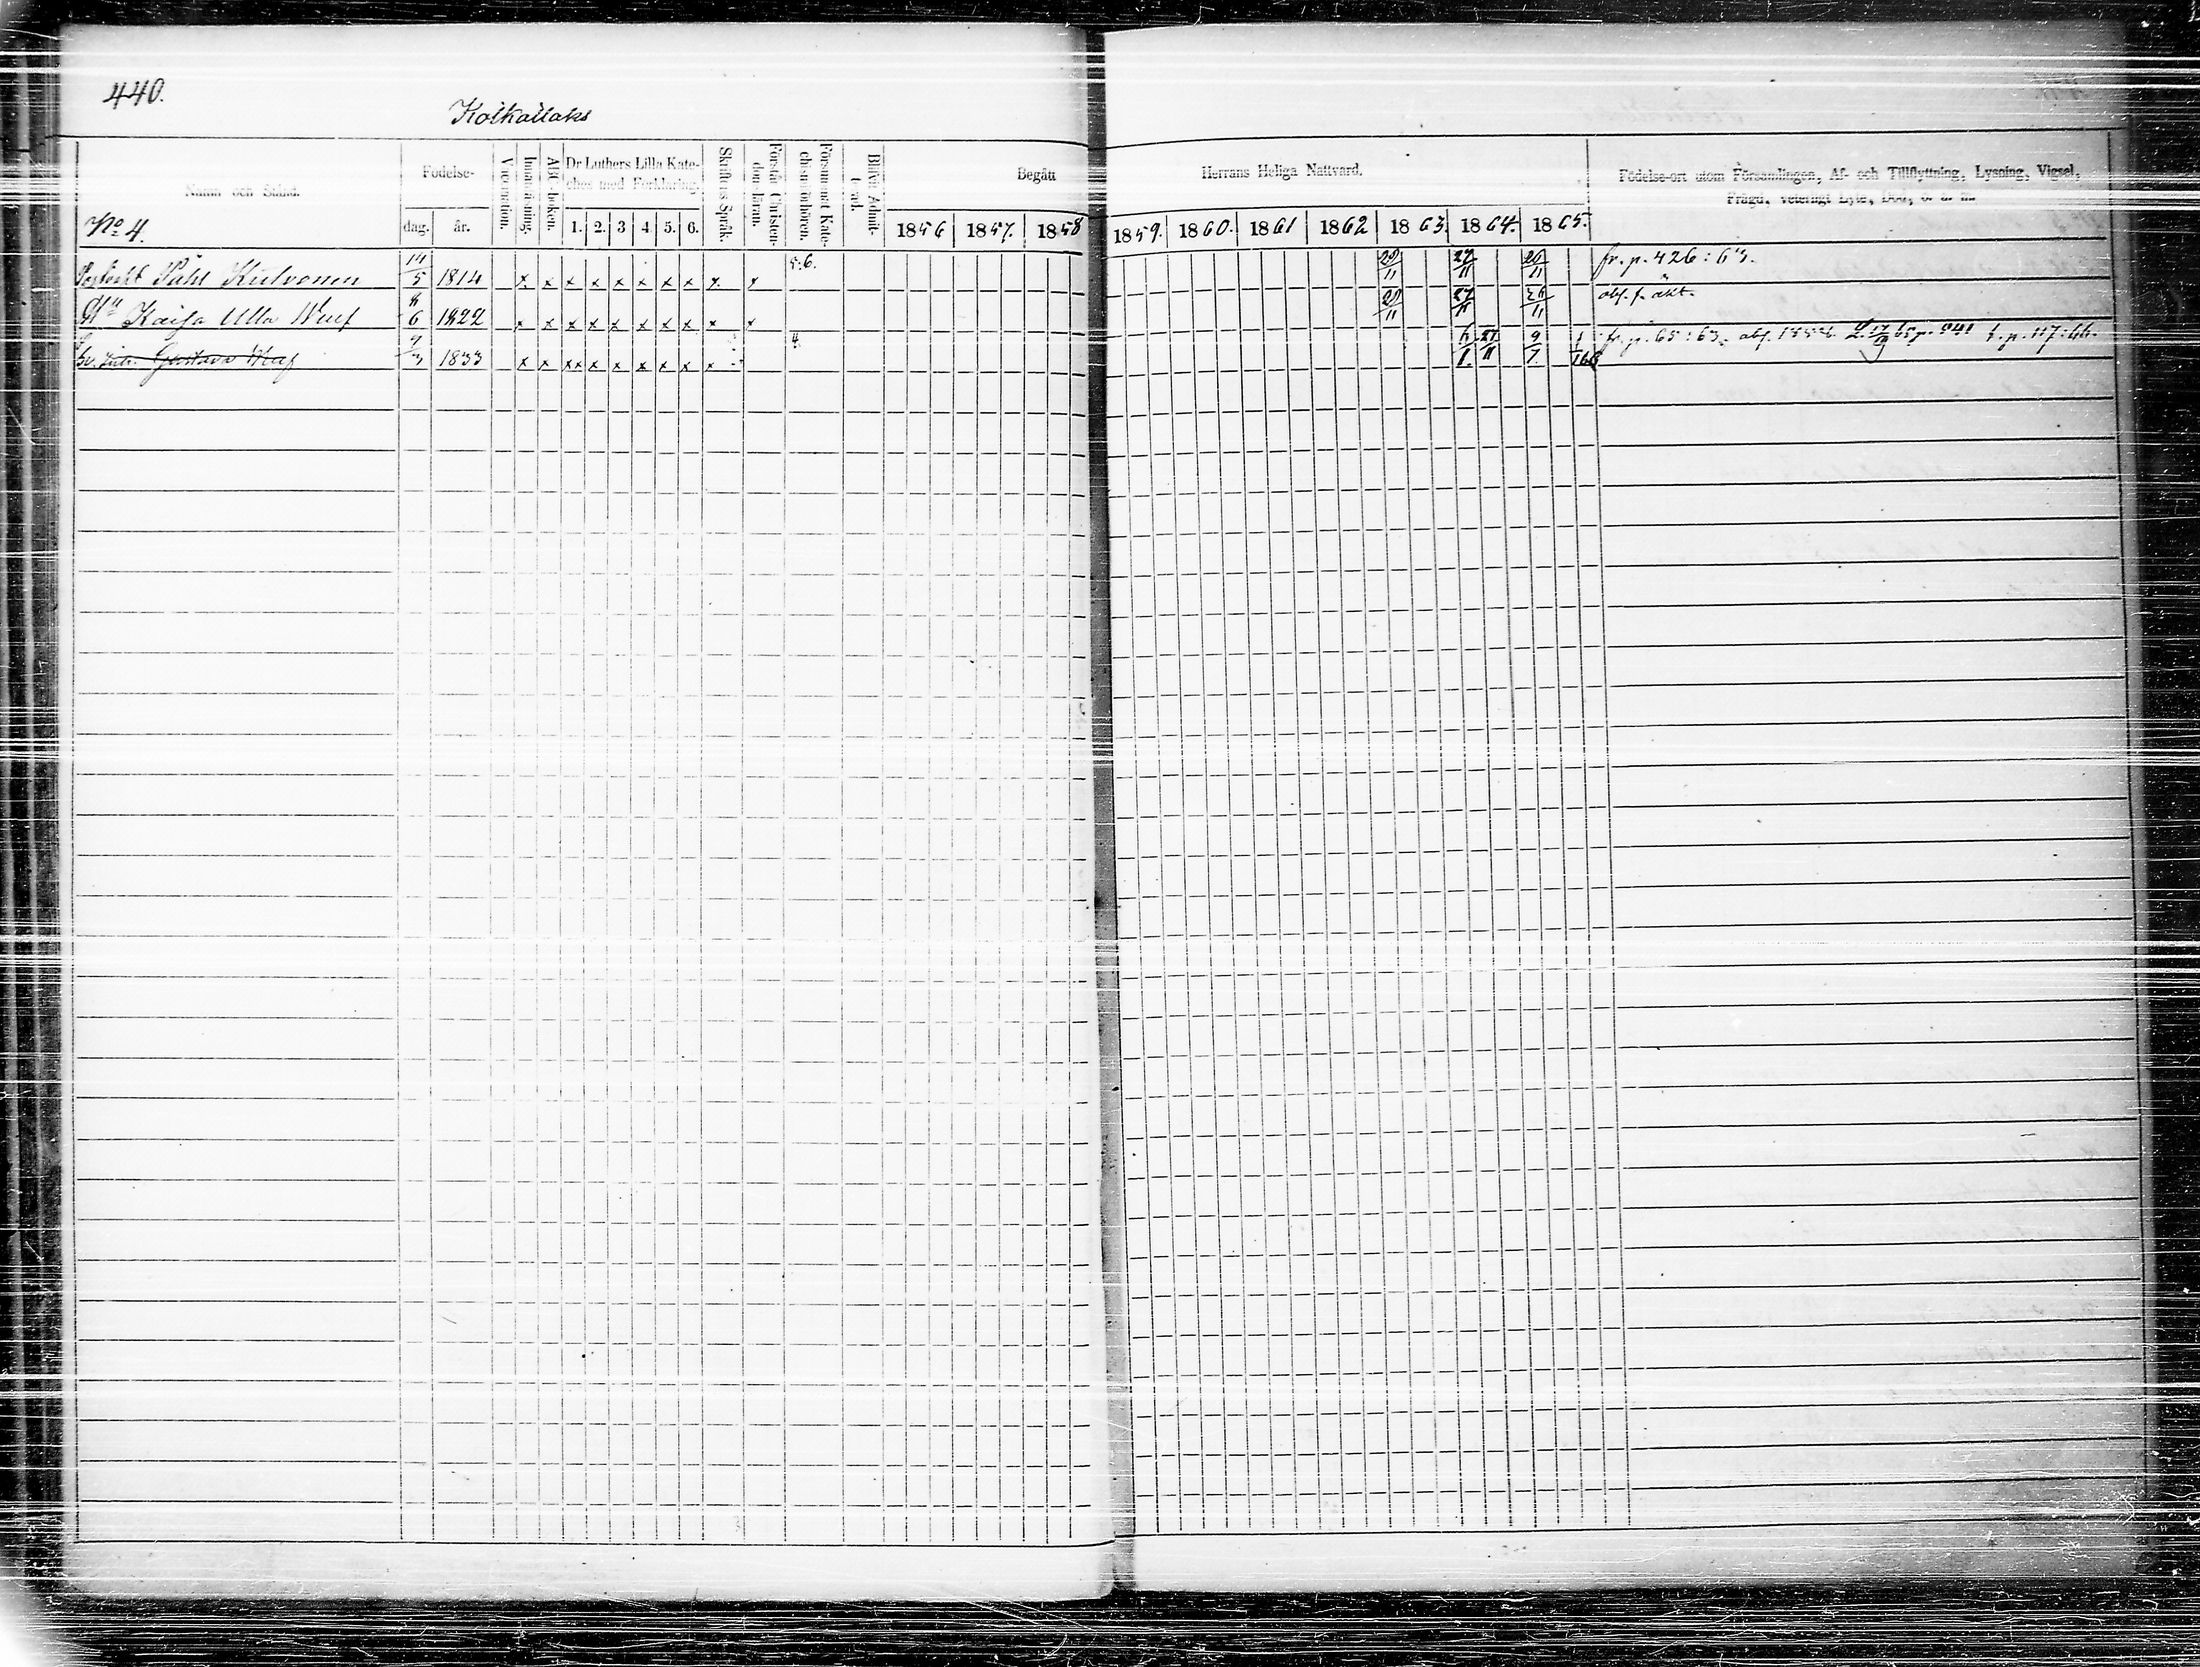 440.
Koikallaks
Namn och Stånd.
Födelse-
dag.
år.
Vaccination.
Innanläsning.
ABC-boken.
Dr Luthers Lilla Kate-
ches med Förklaring.
1. 2. 3 4. 5. 6.
Skriftens Språk.
Förstår Christen-
doms-läran.
Försummat Kate-
chismiförhören.
Blifvit Admit-
terad.
Begått
Herrans Heliga Nattvard.
1856 1857. 1858 1859. 1860. 1861 1862 1863. 1864. 1865.
Födelse-ort utom Församlingen, Af- och Tillflyttning, Lysning, Vigsel,
Frägd, veterligt Lyte, Död, o. a. m.
No 4.
Påhl Kulvonen 14/5 1814 x x x x x x x x x x 5.6. 29/11 27/11 26/11 fr. p. 426:63.
Hu Kaisa Ulla Wuef 8/6 1822 x x x x x x x x x x 29/11 27/11 26/11 abs. f. äkt.
Gustava Wuef 9/3 1833 x x xx x x x x x x 4. 6/1. 27/11 9/7. 1/1 66 fr. p. 65:63. abs. t. p. 117:66.